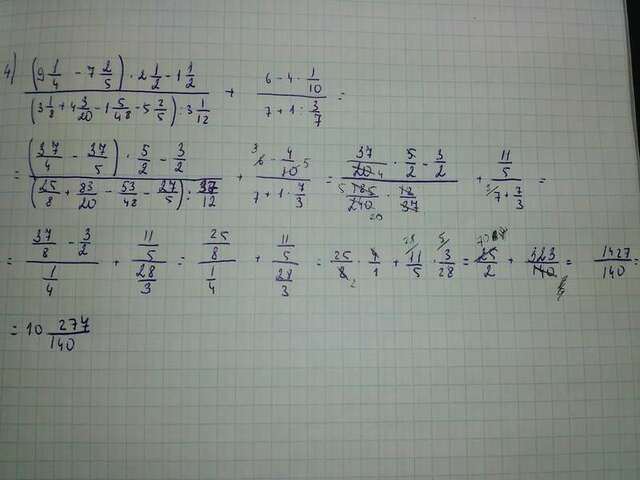 4) ((9 1/4 - 7 2/5) · 2 1/2 - 1 1/2) / ((3 1/8 + 4 3/20 - 1 5/48 - 5 2/5) : 3 1/12) + (6 - 4 · 1/10) / (7 + 1 : 3/7) =
= ((37/4 - 37/5) · 5/2 - 3/2) / ((25/8 + 83/20 - 53/48 - 27/5) : 37/12) + (6 - 4/10) / (7 + 1 · 7/3) = (37/20 · 5/2 - 3/2) / (185/240 · 12/37) + (11/5) / (7 + 7/3) =
= (37/8 - 3/2) / (1/4) + (11/5) / (28/3) = (25/8) / (1/4) + (11/5) / (28/3) = 25/8 · 4/1 + 11/5 · 3/28 = 25/2 + 323/140 = 1427/140 =
= 10 277/140